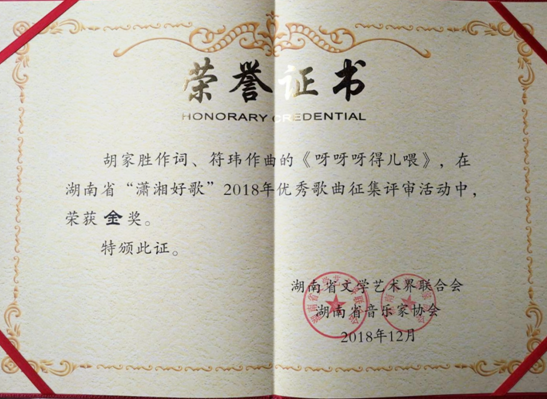 荣誉证书
HONORARY CREDENTIAL
胡家胜作词、符玮作曲的《呀呀呀得儿喂》，在
湖南省“潇湘好歌”2018年优秀歌曲征集评审活动中，
荣获 金 奖。
特颁此证。
湖南省文学艺术界联合会
湖南省音乐家协会
2018年12月